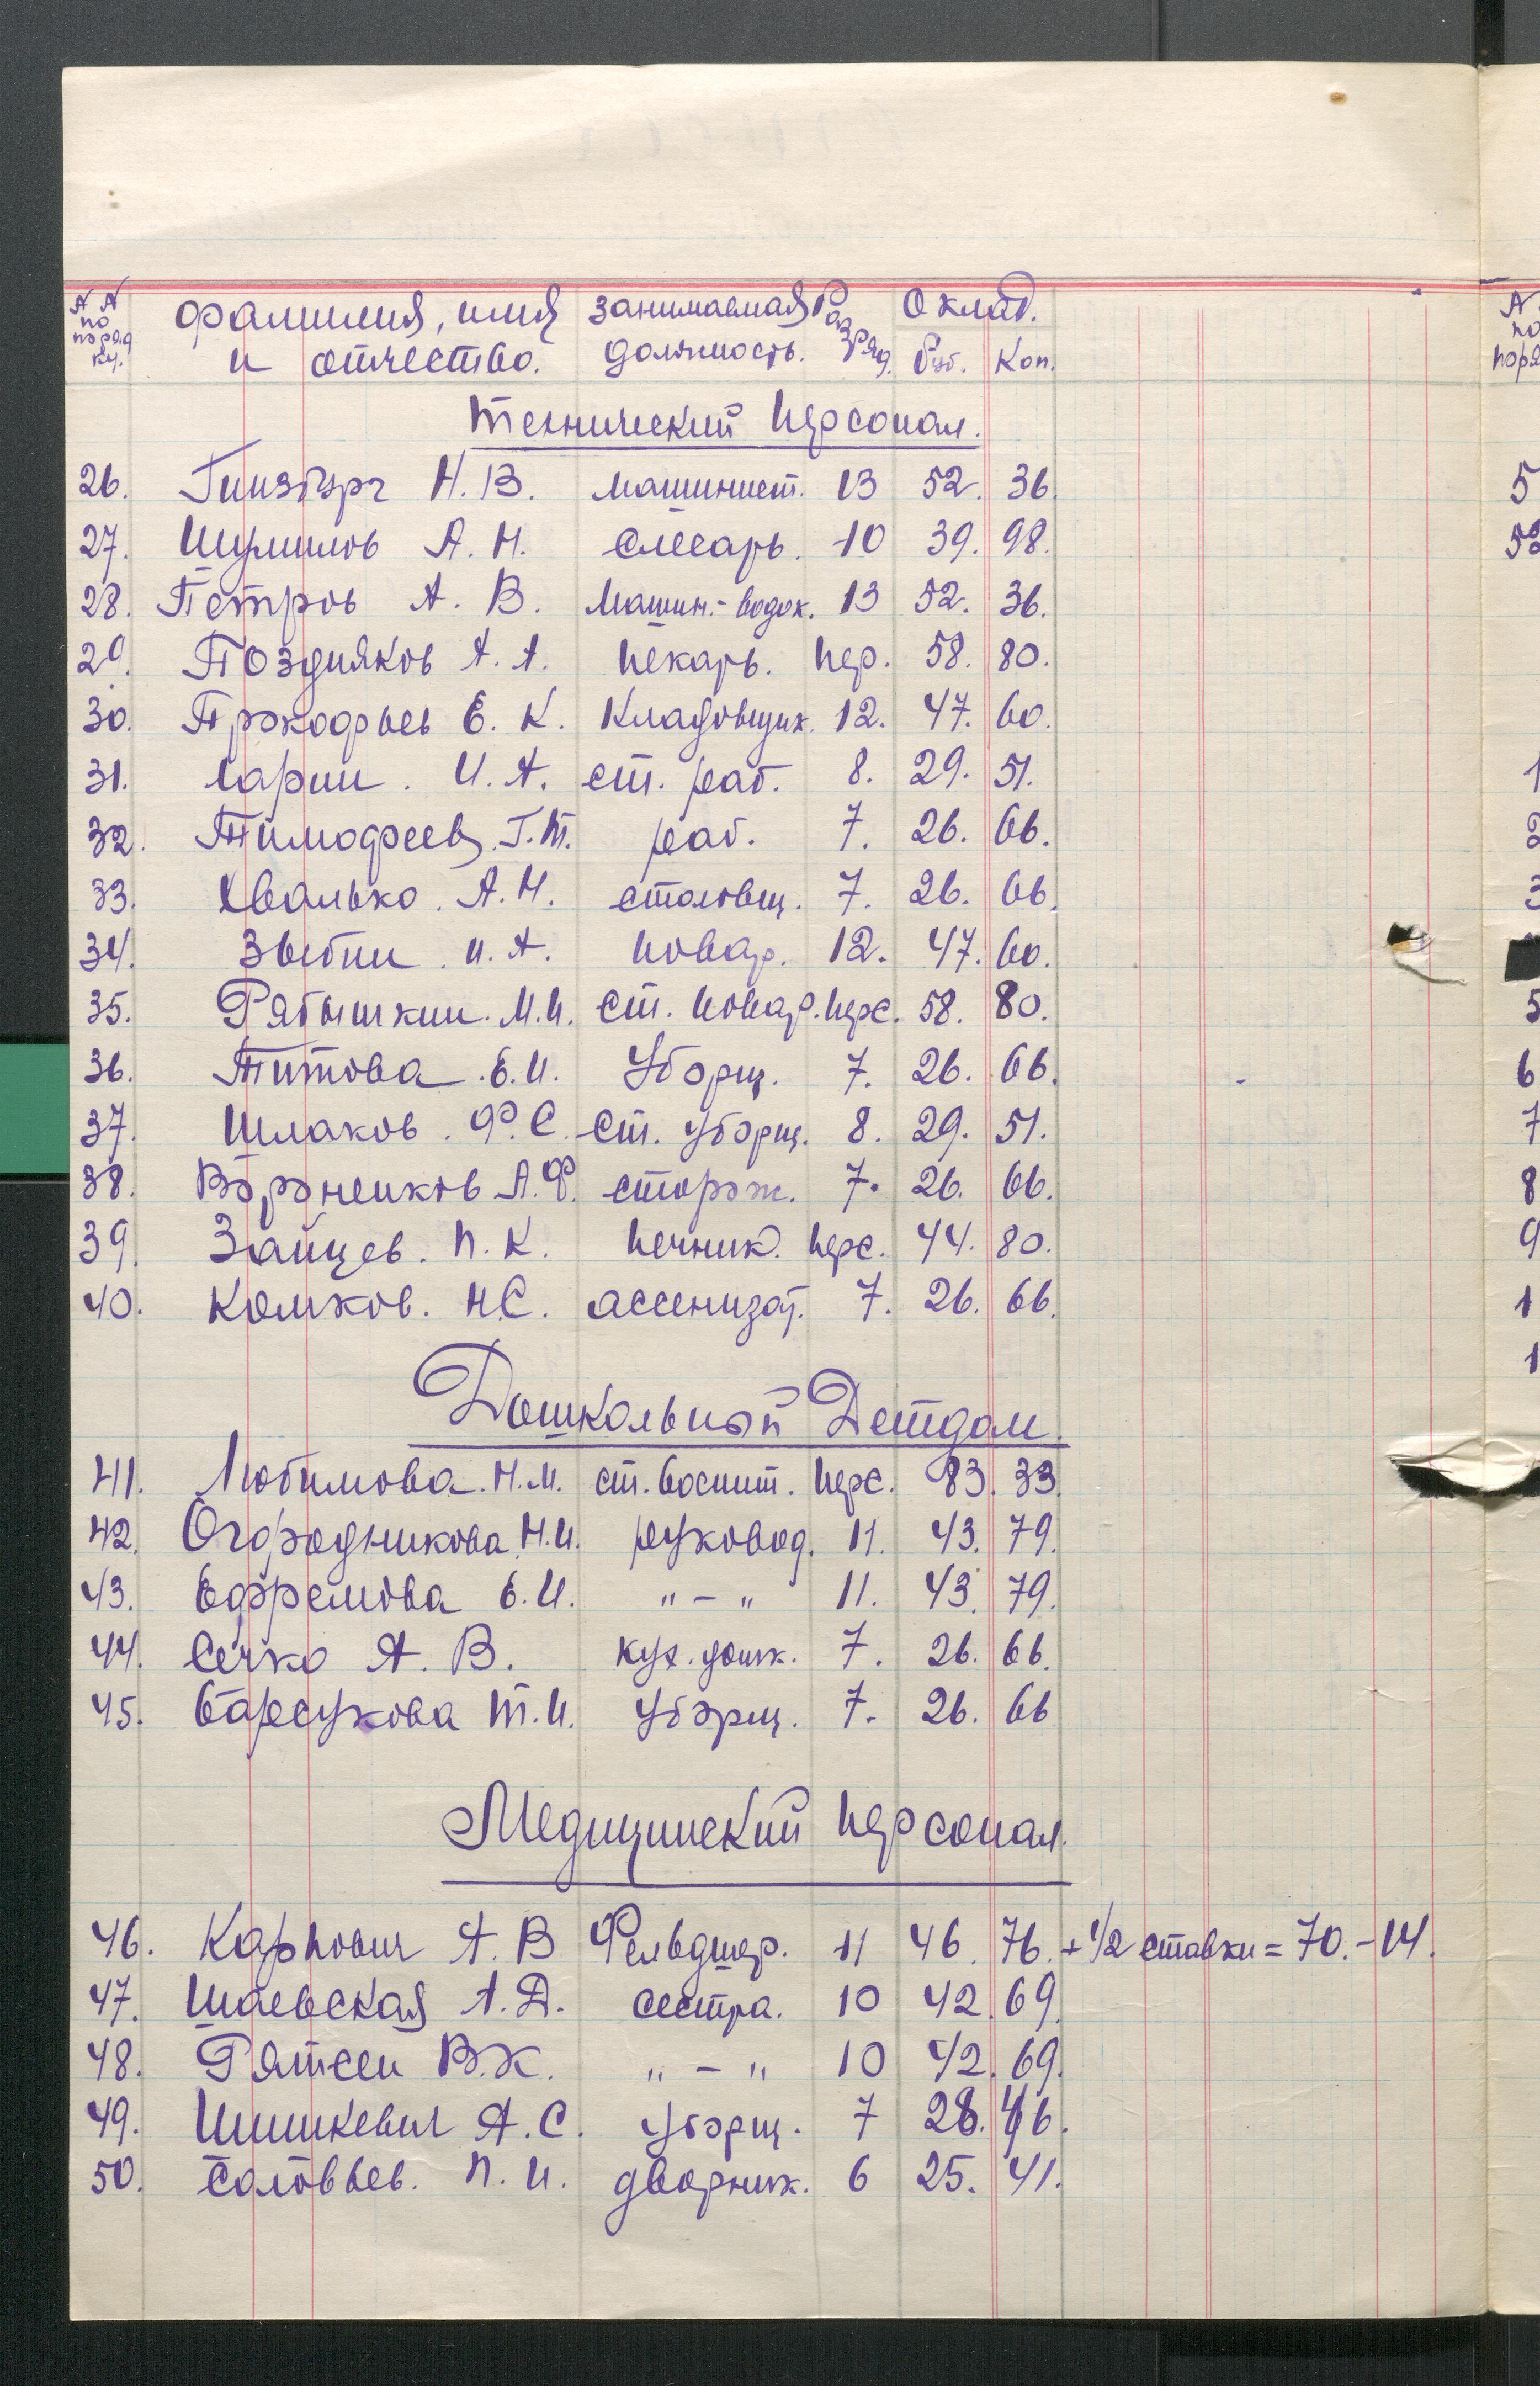 № № по порядку. фамилия, имя и отчество. занимаемая должность. Разряд. Оклад. Руб. Коп.
Технический персонал.
26. Гинзбург Н. В. машинист. 13 52. 36.
27. Шумилов А. Н. слесарь. 10 39. 98.
28. Петров А. В. Машин.-водок. 13 52. 36.
29. Поздняков А. А. пекарь. пер. 58. 80.
30. Прокофьев Е. К. Кладовщик. 12. 47. 60.
31. Ларин. И. А. ст. раб. 8. 29. 51.
32. Тимофеев. Г. Т. раб. 7. 26. 66.
33. Хвалько. А. Н. столовщ. 7. 26. 66.
34. Зыбин. И. А. повар. 12. 47. 60.
35. Рябышкин. М. И. ст. повар. перс. 58. 80.
36. Титова. Е. И. Уборщ. 7. 26. 66.
37. Шлаков. Ф. С. ст. уборщ. 8. 29. 51.
38. Вороненков А. Ф. сторож. 7. 26. 66.
39. Зайцев. П. К. печник. перс. 44. 80.
40. Комков. Н. С. ассенизат. 7. 26. 66.
Дошкольный Детдом.
41. Любимова. Н. М. ст. воспит. перс. 83. 33
42. Огородникова. Н. И. руковод. 11. 43. 79.
43. Ефремова Е. И. „ – „ 11. 43. 79.
44. Сечко А. В. кух. дошк. 7. 26. 66.
45. Барсукова Т. И. уборщ. 7. 26. 66
Медицинский персонал.
46. Карпович А. В Фельдшер. 11 46. 76. + 1/2 ставки = 70. – 14.
47. Шаевская А. Д. сестра. 10 42. 69.
48. Рятсеп В. К. „ – „ 10 42. 69.
49. Шишкевич А. С. уборщ. 7 28. 46.
50. Соловьев. П. И. дворник. 6 25. 41.